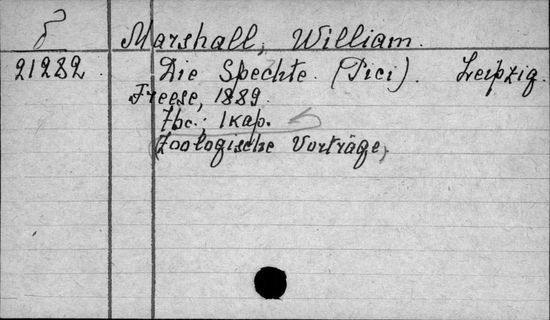 Marshall, William.
21282. Die Spechte. (Pici). Leipzig.
Freese, 1889.
7bc.; 1 кар.
(Zoologische Vorträge,